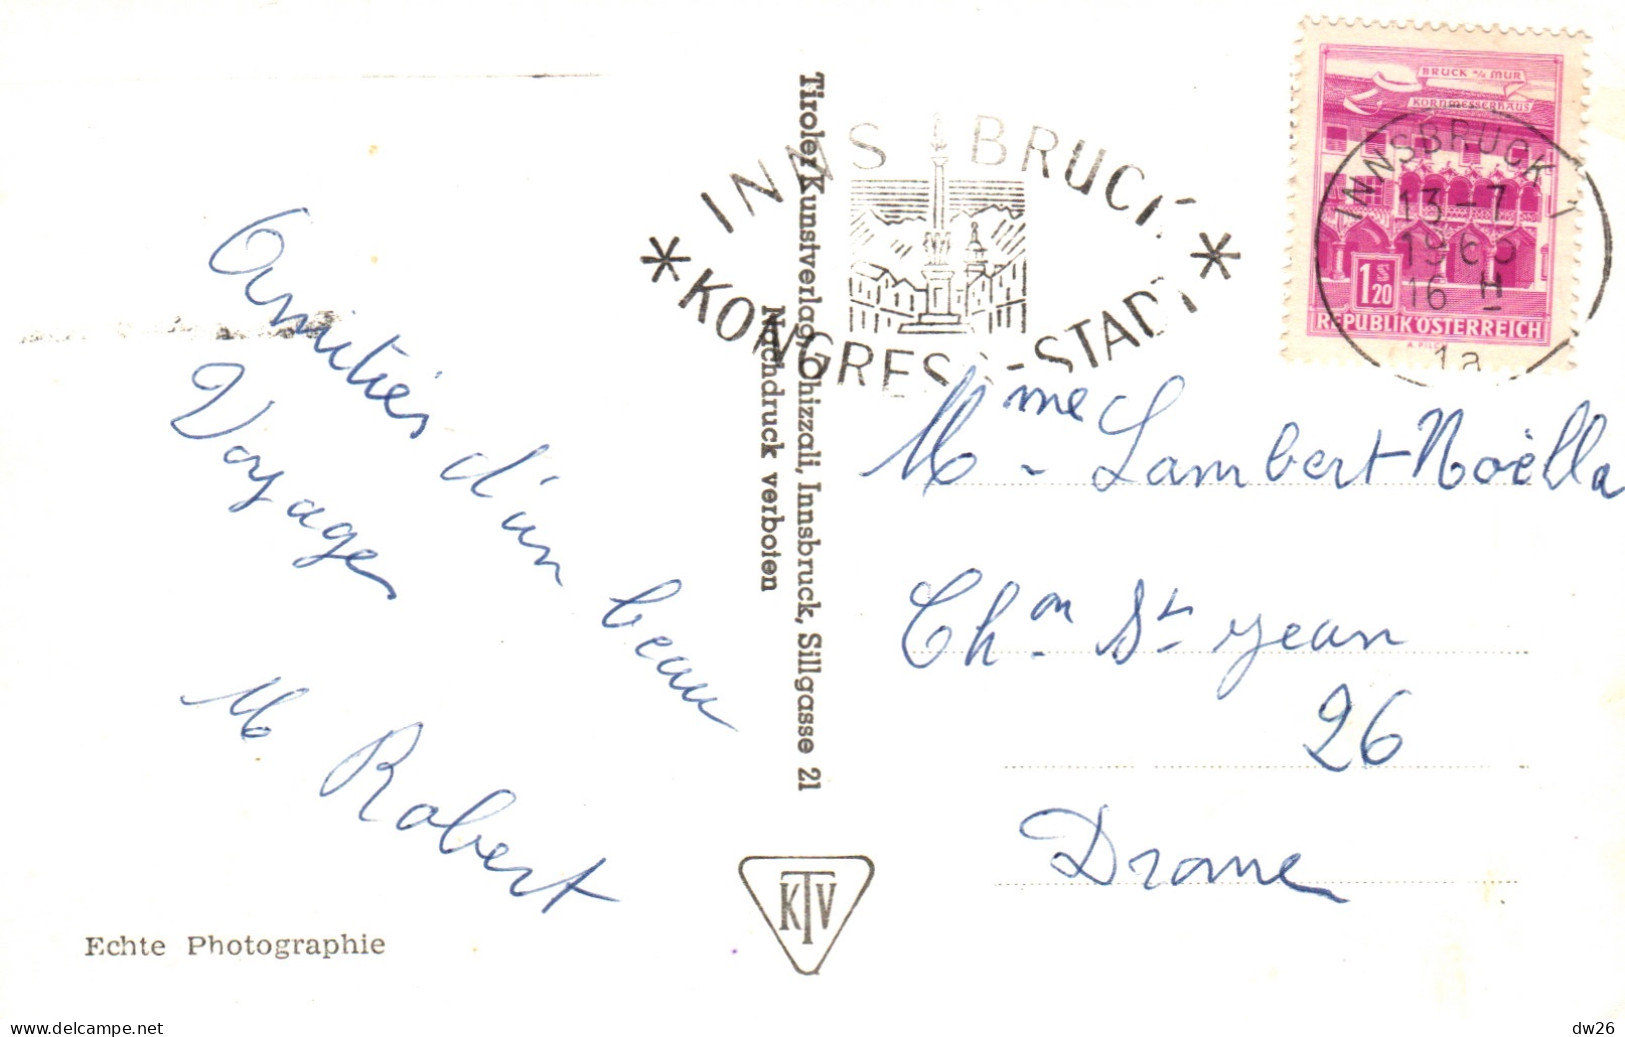 Amitiés d'un beau
Voyage
M. Robert
Echte Photographie
Tiroler Kunstverlag, Chizzali, Innsbruck, Sillgasse 21
Nachdruck verboten
KTV
INNSBRUCK
* KONGRESS-STADT *
BRUCK a/d MUR
KORNMESSERHAUS
1 S 20
REPUBLIK ÖSTERREICH
INNSBRUCK 1
13-7
16 H
1a
Mme Lambert Noëlla
Chon St Jean
26
Drome
www.delcampe.net
dw26